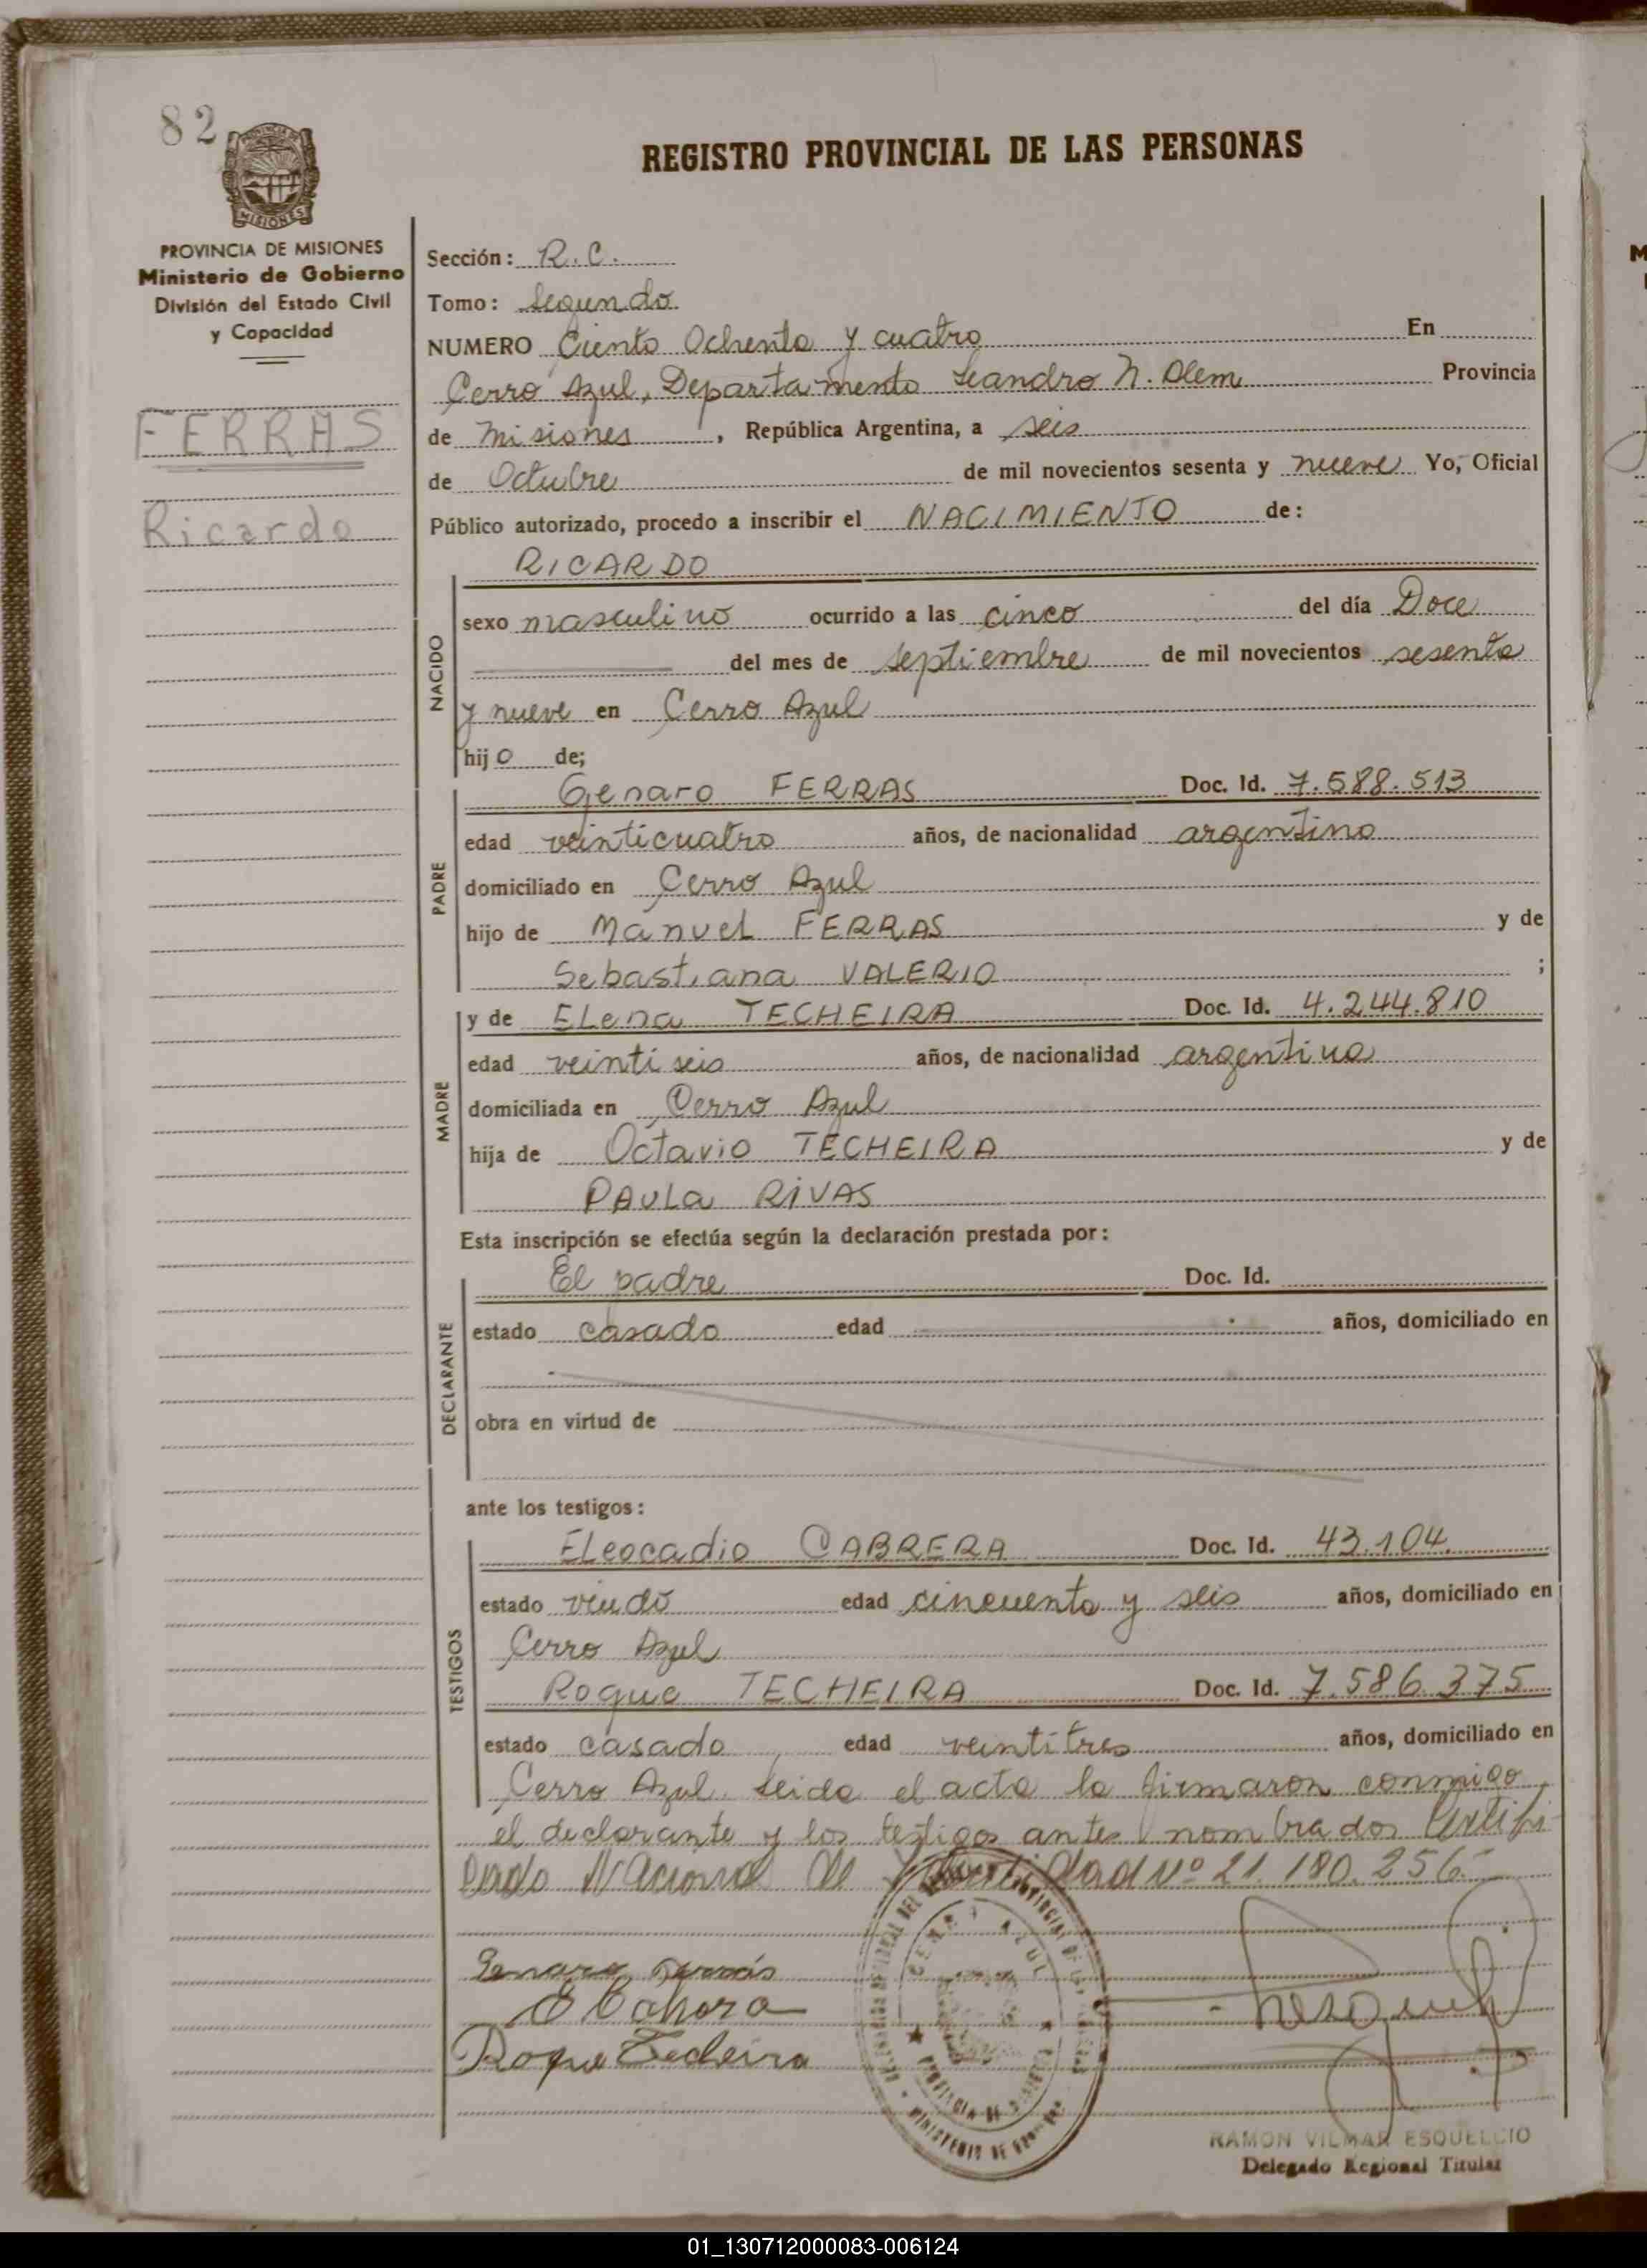 82
PROVINCIA DE MISIONES
Ministerio de Gobierno
División del Estado Civil
y Capacidad
FERRAS
Ricardo
REGISTRO PROVINCIAL DE LAS PERSONAS
Sección: R.C.
Tomo: Segundo
NUMERO Ciento Ochenta y cuatro En
Cerro Azul, Departamento Leandro N. Alem Provincia
de Misiones, República Argentina, a seis
de Octubre de mil novecientos sesenta y nueve Yo, Oficial
Público autorizado, procedo a inscribir el NACIMIENTO de:
RICARDO
NACIDO
sexo masculino ocurrido a las cinco del día Doce
del mes de septiembre de mil novecientos sesenta
y nueve en Cerro Azul
hijo de;
PADRE
Genaro FERRAS Doc. Id. 7.588.513
edad veinticuatro años, de nacionalidad argentino
domiciliado en Cerro Azul
hijo de Manuel FERRAS y de
Sebastiana VALERIO ;
MADRE
y de Elena TECHEIRA Doc. Id. 4.244.810
edad veintiseis años, de nacionalidad argentina
domiciliada en Cerro Azul
hija de Octavio TECHEIRA y de
PAULA RIVAS
Esta inscripción se efectúa según la declaración prestada por:
DECLARANTE
El padre Doc. Id.
estado casado edad años, domiciliado en
obra en virtud de
ante los testigos:
TESTIGOS
Eleocadio CABRERA Doc. Id. 43.104
estado viudo edad cincuenta y seis años, domiciliado en
Cerro Azul
Roque TECHEIRA Doc. Id. 7.586.375
estado casado edad veintitres años, domiciliado en
Cerro Azul. Leida el acta la firmaron conmigo
el declarante y los testigos antes nombrados Certifi
cado Nacional de Identidad Nº 21.180.256.-
Genaro Ferrás
Roque Techeira
CERRO AZUL
RAMON VILMAR ESQUELCIO
Delegado Regional Titular
01_130712000083-006124